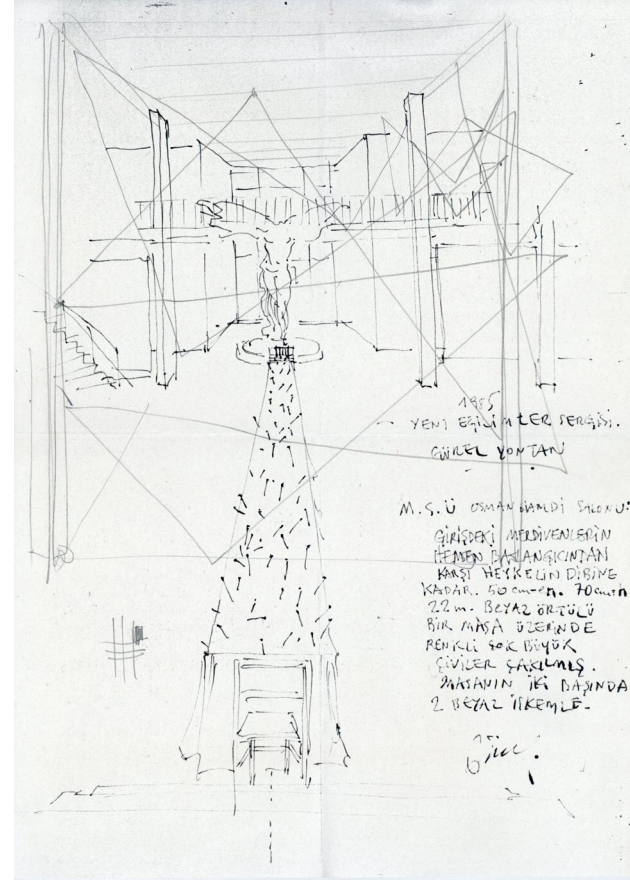 1985
YENİ EĞİLİMLER SERGİSİ.
GÜREL YONTAN
M.S.Ü OSMAN HAMDİ SALONU:
GİRİŞDEKİ MERDİVENLERİN
HEMEN BAŞLANGICINTAN
KARŞI HEYKELİN DİBİNE
KADAR. 50 cm-en. 70cm-h
22 m. BEYAZ ÖRTÜLÜ
BİR MASA ÜZERİNDE
RENKLİ ÇOK BÜYÜK
ÇİVİLER ÇAKILMIŞ.
MASANIN İKİ BAŞINDA
2 BEYAZ İSKEMLE-